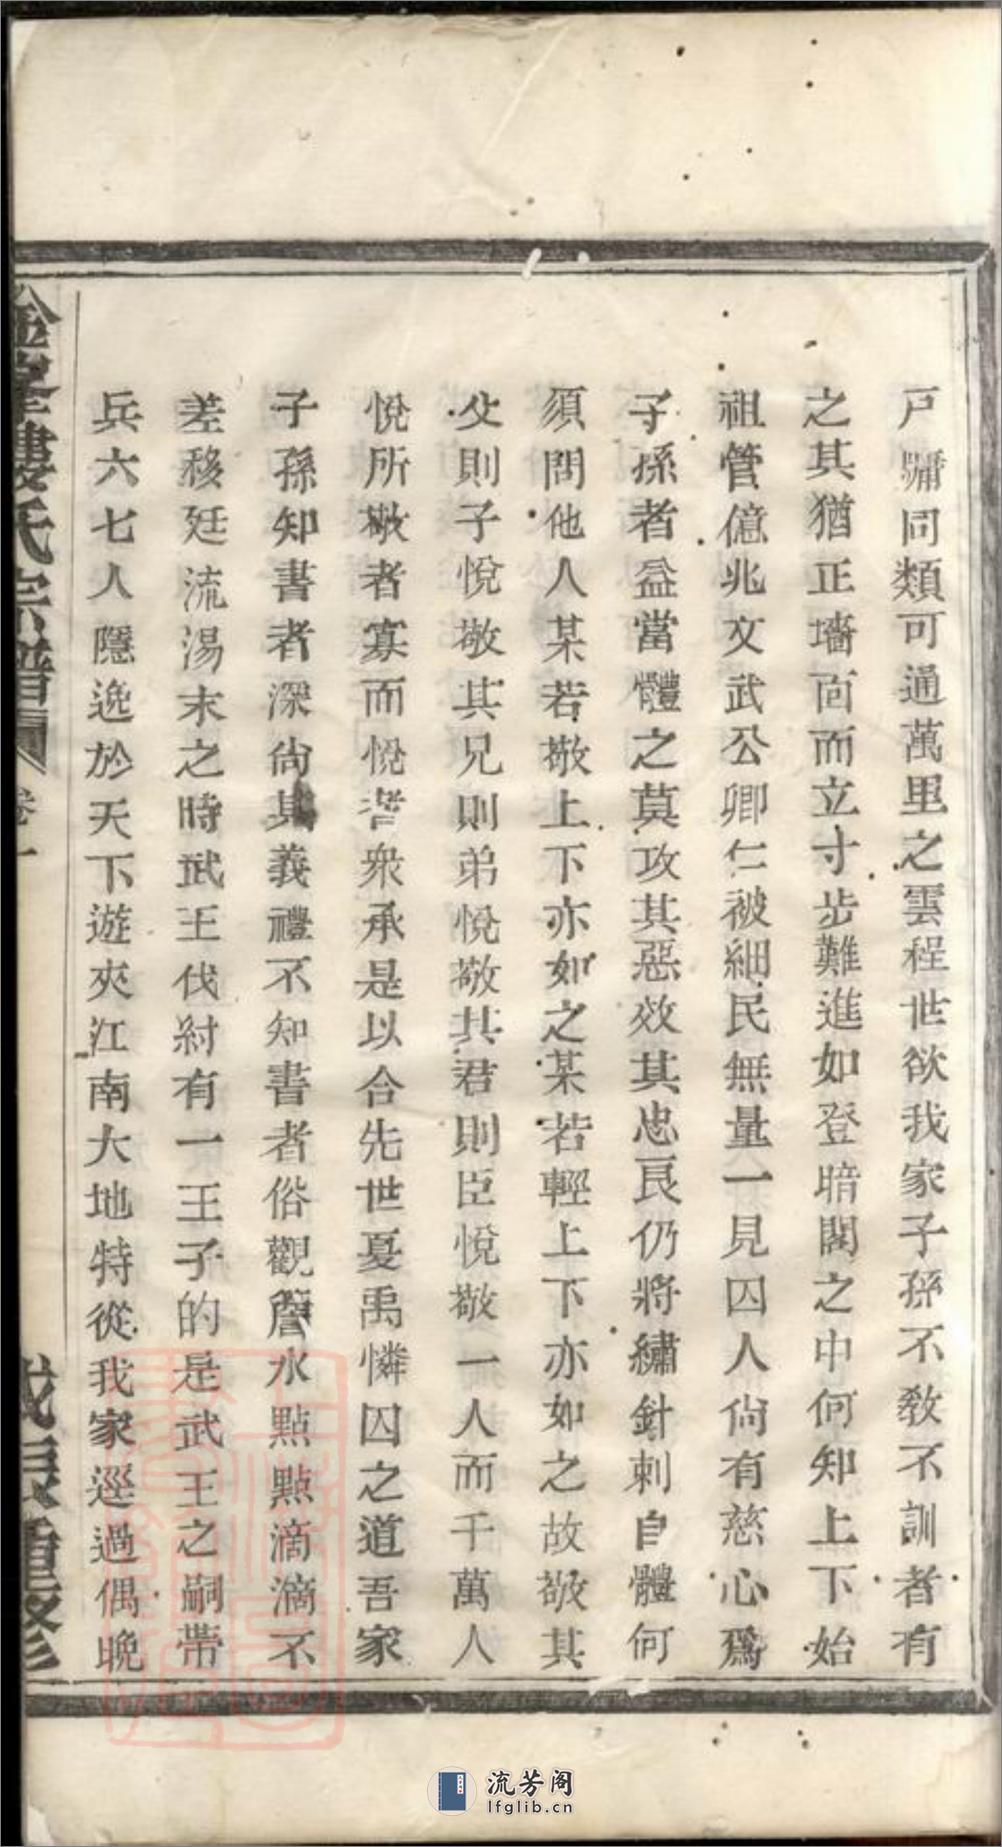 戸牗同類可通萬里之雲程世欲我家子孫不敎不訓者有
之其猶正墻面而立寸步難進如登暗閣之中何知上下始
祖管億兆文武公卿仁被細民無量一見囚人尙有慈心爲
子孫者益當體之莫攻其惡效其忠良仍將繡針刺自體何
須問他人某若敬上下亦如之某若輕上下亦如之故敬其
父則子悅敬其兄則弟悅敬其君則臣悅敬一人而千萬人
悅所敬者寡而悅者衆承是以合先世夏禹憐囚之道吾家
子孫知書者深尙其義禮不知書者俗觀簷水點點滴滴不
差移廷流湯末之時武王伐紂有一王子的是武王之嗣帶
兵六七人隱逸於天下遊夾江南大地特從我家逕過偶晚
婁氏宗譜 卷一
戊辰重修
流芳阁
lfglib.cn